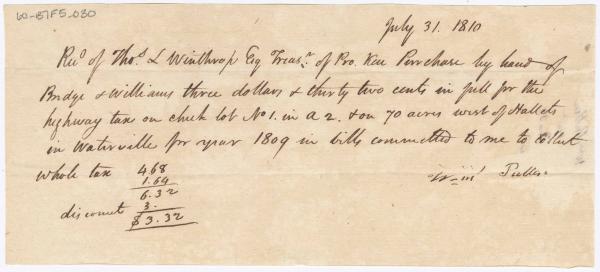 60-B7F5-030
July 31. 1810
Rec'd of Thos. L Winthrop Esq Treasr. of Pro. Ken Purchase by hand of
Bridge & Williams three dollars & thirty two cents in full for the
highway tax on check lot No 1. in A 2. & on 70 acres west of Hallets
in Waterville for year 1809 in bills committed to me to collect
whole tax 4.68
1.64
6.32
discount 3.
$3.32
Wm